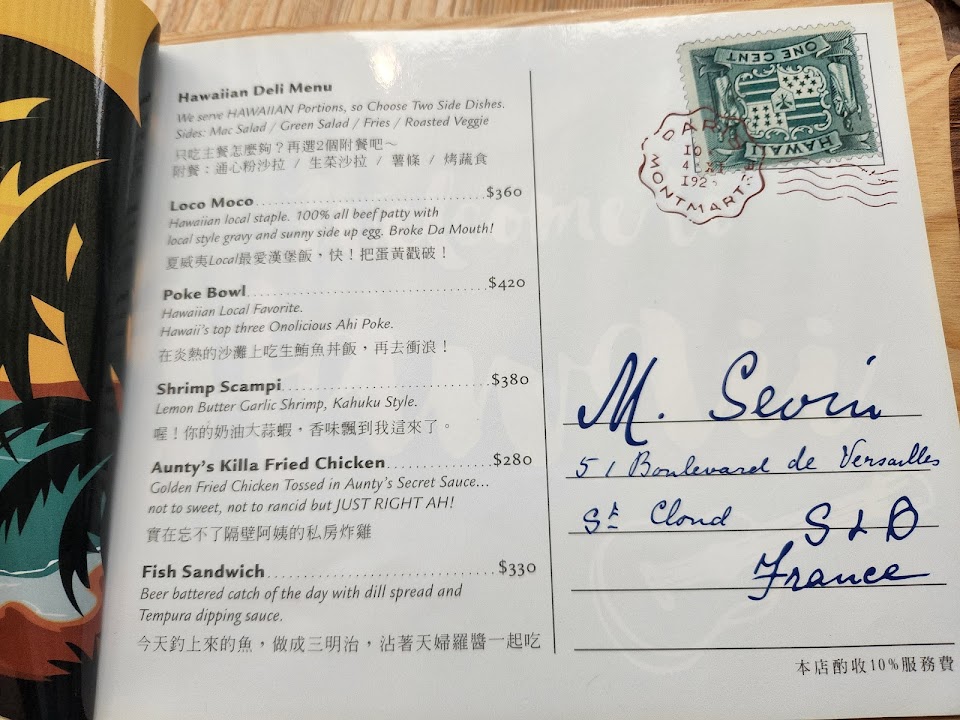 Hawaiian Deli Menu
We serve HAWAIIAN Portions, so Choose Two Side Dishes.
Sides: Mac Salad / Green Salad / Fries / Roasted Veggie
只吃主餐怎麼夠？再選2個附餐吧～
附餐：通心粉沙拉 / 生菜沙拉 / 薯條 / 烤蔬食
Loco Moco $360
Hawaiian local staple. 100% all beef patty with
local style gravy and sunny side up egg. Broke Da Mouth!
夏威夷Local最愛漢堡飯，快！把蛋黃戳破！
Poke Bowl $420
Hawaiian Local Favorite.
Hawaii's top three Onolicious Ahi Poke.
在炎熱的沙灘上吃生鮪魚丼飯，再去衝浪！
Shrimp Scampi $380
Lemon Butter Garlic Shrimp, Kahuku Style.
喔！你的奶油大蒜蝦，香味飄到我這來了。
Aunty's Killa Fried Chicken $280
Golden Fried Chicken Tossed in Aunty's Secret Sauce...
not to sweet, not to rancid but JUST RIGHT AH!
實在忘不了隔壁阿姨的私房炸雞
Fish Sandwich $330
Beer battered catch of the day with dill spread and
Tempura dipping sauce.
今天釣上來的魚，做成三明治，沾著天婦羅醬一起吃
ONE CENT
HAWAII
MONTMARTRE
M. Sevin
51 Boulevard de Versailles
St Cloud S & O
France
本店酌收10%服務費